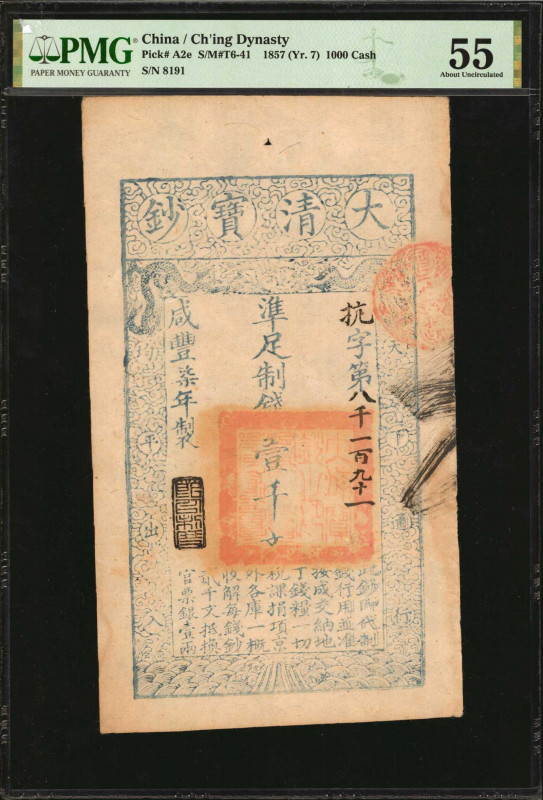 PMG
PAPER MONEY GUARANTY
China / Ch'ing Dynasty
Pick# A2e S/M#T6-41 1857 (Yr. 7) 1000 Cash
S/N 8191
55
About Uncirculated
大清寶鈔
天下通行
抗字第八千一百九十一
準足制錢壹千文
咸豐柒年製
均平出入
此鈔即代制
錢行用並准
按成交納地
丁錢糧一切
稅課捐項京
外各庫一概
收解每錢鈔
貳千文抵換
官票銀壹兩